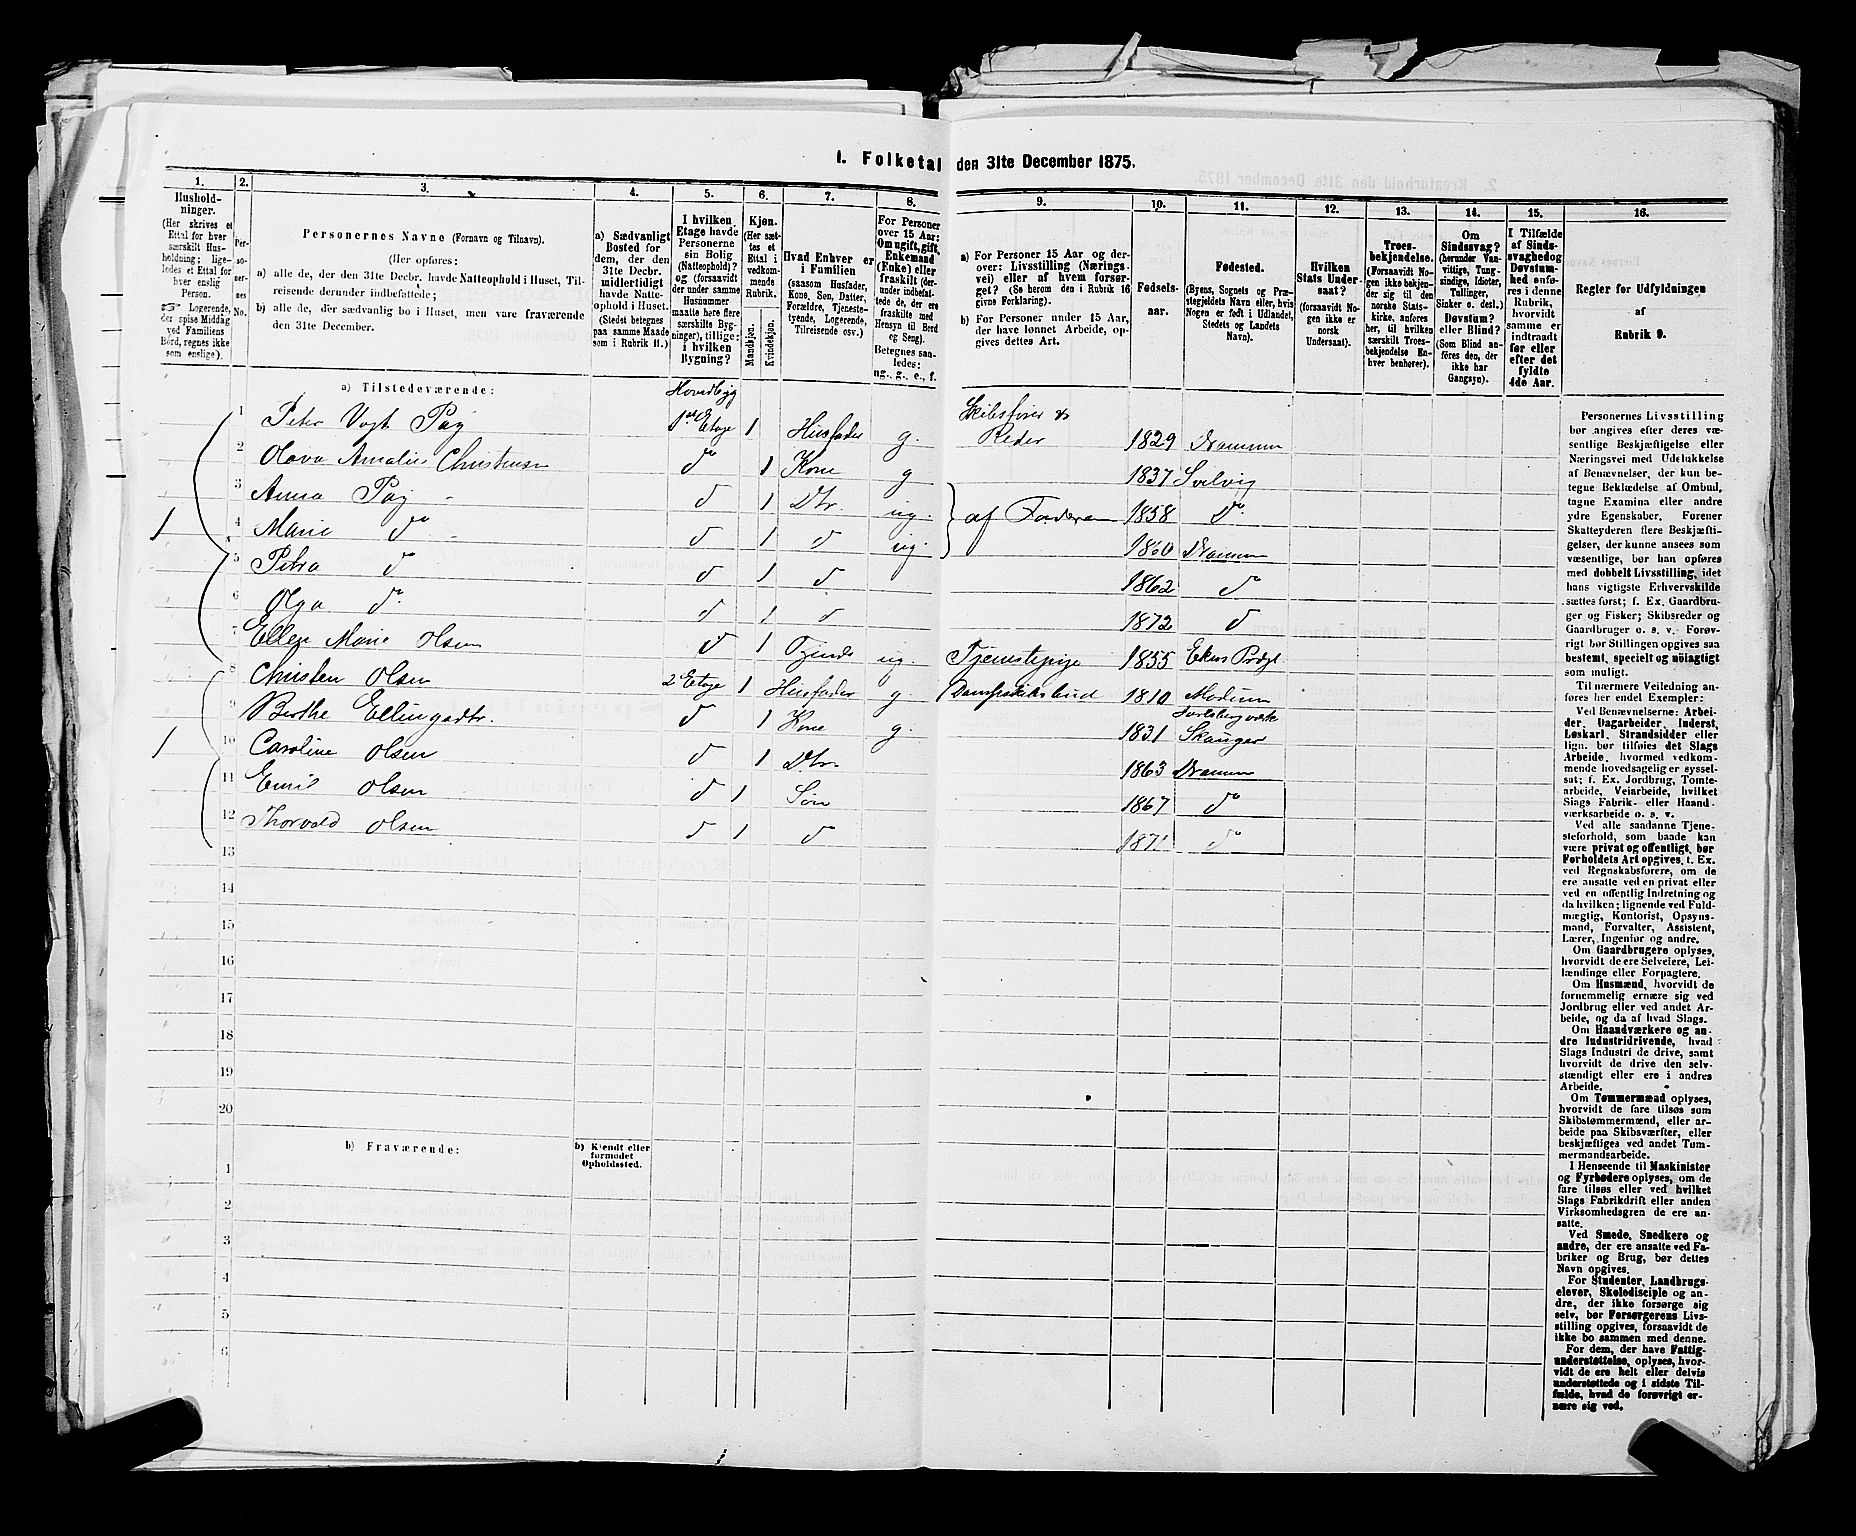 1. Folketal den 31te December 1875.
1. 2. 3. 4. 5. 6. 7. 8. 9. 10. 11. 12. 13. 14. 15. 16.
Husholdninger.
(Her skrives et
Ettal for hver
særskilt Husholdning;
ligeledes et Ettal for
hver enslig
Person.
☞ Logerende,
der spise Middag
ved Familiens
Bord, regnes ikke
som enslige).
Personernes No.
Personernes Navne (Fornavn og Tilnavn).
(Her opføres:
a) alle de, der den 31te Decbr. havde Natteophold i Huset, Tilreisende
derunder indbefattede;
b) alle de, der sædvanlig bo i Huset, men vare fraværende
den 31te December.
a) Sædvanligt
Bosted for
dem, der den
31te Decbr.
midlertidigt
havde Natteophold
i Huset.
(Stedet betegnes
paa samme Maade
som i Rubrik 11.)
I hvilken
Etage havde
Personerne
sin Bolig
(Natteophold)?
og (forsaavidt
der under samme
Husnummer
maatte høre flere
særskilte Bygninger),
tillige:
i hvilken
Bygning?
Kjøn.
(Her sættes
et
Ettal i
vedkommende
Rubrik.
Mandkjøn.
Kvindekjøn.
Hvad Enhver er
i Familien
(saasom Husfader,
Kone, Søn, Datter,
Forældre, Tjenestetyende,
Logerende,
Tilreisende osv.)
For Personer
over 15 Aar:
Om ugift, gift,
Enkemand
(Enke) eller
fraskilt (derunder
indbefattede
de, der ere
fraskilte med
Hensyn til Bord
og Seng).
Betegnes saaledes:
ug., g., e., f.
a) For Personer 15 Aar og derover:
Livsstilling (Næringsvei)
eller af hvem forsørget?
(Se herom den i Rubrik 16
givne Forklaring).
b) For Personer under 15 Aar,
der have lønnet Arbeide, opgives
dettes Art.
Fødselsaar.
Fødested.
(Byens, Sognets og Præstegjeldets
Navn eller, hvis
Nogen er født i Udlandet,
Stedets og Landets
Navn).
Hvilken
Stats Undersaat?
(forsaavidt Nogen
ikke er
norsk
Undersaat).
Troesbekjendelse.
(Forsaavidt Nogen
ikke bekjender
sig til den
norske Statskirke,
anføres
her, til hvilken
særskilt Troesbekjendelse
Enhver
benhører).
Om
Sindssvag?
(herunder Vanvittige,
Tungsindige,
Idioter,
Tullinger,
Sinker o. desl.)
Døvstum?
eller Blind?
(Som Blind anføres
den, der
ikke har
Gangsyn).
I Tilfælde
af Sindssvaghed
og
Døvstumhed
enføres
i denne
Rubrik,
hvorvidt
samme er
indtraadt
før eller
efter det
fyldte
4de Aar.
Regler for Udfyldningen
af
Rubrik 9.
a) Tilstedeværende:
Hovedbyg
1 Peter Vogt Pay 1ste Etage 1 Husfader g. Skibsfører & Reder 1829 Drammen
2 Olava Amalie Christensen do 1 Kone g 1837 Svelvig
3 Anna Pay d 1 Dtr. ug. af Faderen 1858 do
1 4 Marie do d 1 d ug. 1860 Drammen
5 Petra d d 1 d 1862 do
6 Olga do d 1 d 1872 d
7 Ellen Marie Olsen d 1 Tyende ug. Tjenestepige 1855 Ekers Prdgt
8 Christen Olsen 2 Etage 1 Husfader g. Dampskibsbud 1810 Modum
9 Berthe Ellingsdtr. d 1 Kone g. 1831 Skauger
1 10 Caroline Olsen d 1 Dtr. 1863 Drammen
11 Emil Olsen d 1 Søn 1867 do
12 Thorvald Olsen d 1 d 1871 do
13
14
15
16
17
18
19
20
b) Fraværende:
b) Kjendt eller
formodet
Opholdssted.
1
2
3
4
5
6
Personernes Livsstilling
bør angives efter deres væsentlige
Beskjæftigelse eller
Næringsvei med Udelukkelse
af Benævnelser, der kun betegne
Beklædelse af Ombud,
tagne Examina eller andre
ydre Egenskaber. Forener
Skatteyderen flere Beskjæftigelser,
der kunne ansees som
væsentlige, bør han opføres
med dobbelt Livsstilling, idet
hans vigtigste Erhvervskilde
sættes først; f. Ex. Gaardbruger
og Fisker; Skibsreder og
Gaardbruger o. s. v. Forøvrigt
bør Stillingen opgives saa
bestemt, specielt og nøiagtigt
som muligt.
Til nærmere Veiledning anføres
her endel Exempler:
Ved Benævnelserne: Arbeider,
Dagarbeider, Inderst,
Løskarl, Strandsidder eller
lign. bør tilføies det Slags
Arbeide, hvormed vedkommende
hovedsagelig er sysselsat;
f. Ex. Jordbrug, Tomtearbeide,
Veiarbeide, hvilket
Slags Fabrik- eller Haandværksarbeide
o. s. v.
Ved alle saadanne Tjenesteforhold,
som baade kan
være privat og offentligt, bør
Forholdets Art opgives, t. Ex.
ved Regnskabsførere, om de
ere ansatte ved en privat eller
ved en offentlig Indretning og
da hvilken; lignende ved Fuldmægtig,
Kontorist, Opsynsmand,
Forvalter, Assistent,
Lærer, Ingeniør og andre.
Om Gaardbrugere oplyses,
hvorvidt de ere Selveiere, Leilændinge
eller Forpagtere.
Om Husmænd, hvorvidt de
fornemmelig ernære sig ved
Jordbrug eller ved andet Arbeide,
og da af hvad Slags.
Om Haandværkere og andre
Industridrivende, hvad
Slags Industri de drive, samt
hvorvidt de drive den selvstændigt
eller ere i andres
Arbeide.
Om Tømmermænd oplyses,
hvorvidt de fare tilsøs som
Skibstømmermænd, eller arbeide
paa Skibsværfter, eller
beskjæftiges ved andet Tømmermandsarbeide.
I Henseende til Maskinister
og Fyrbødere oplyses, om de
fare tilsøs eller ved hvilket
Slags Fabrikdrift eller anden
Virksomhedsgren de ere ansatte.
Ved Smede, Snedkere og
andre, der ere ansatte ved Fabriker
og Brug, bør dettes
Navn opgives.
For Studenter, Landbrugselever,
Skoledisciple og andre,
der ikke forsørge sig
selv, bør Forsørgerens Livsstilling
opgives, forsaavidt de
ikke bo sammen med denne.
For dem, der have Fattigunderstøttelse,
oplyses, hvorvidt
de ere helt eller delvis
understøttede og i sidste Tilfælde,
hvad de forøvrigt ernære
sig ved.